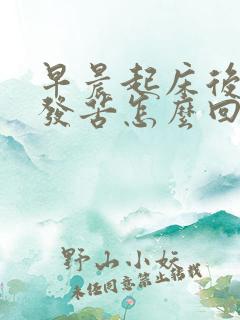 早晨起床後
發苦怎麼回
野山小妖
未经同意禁止转载